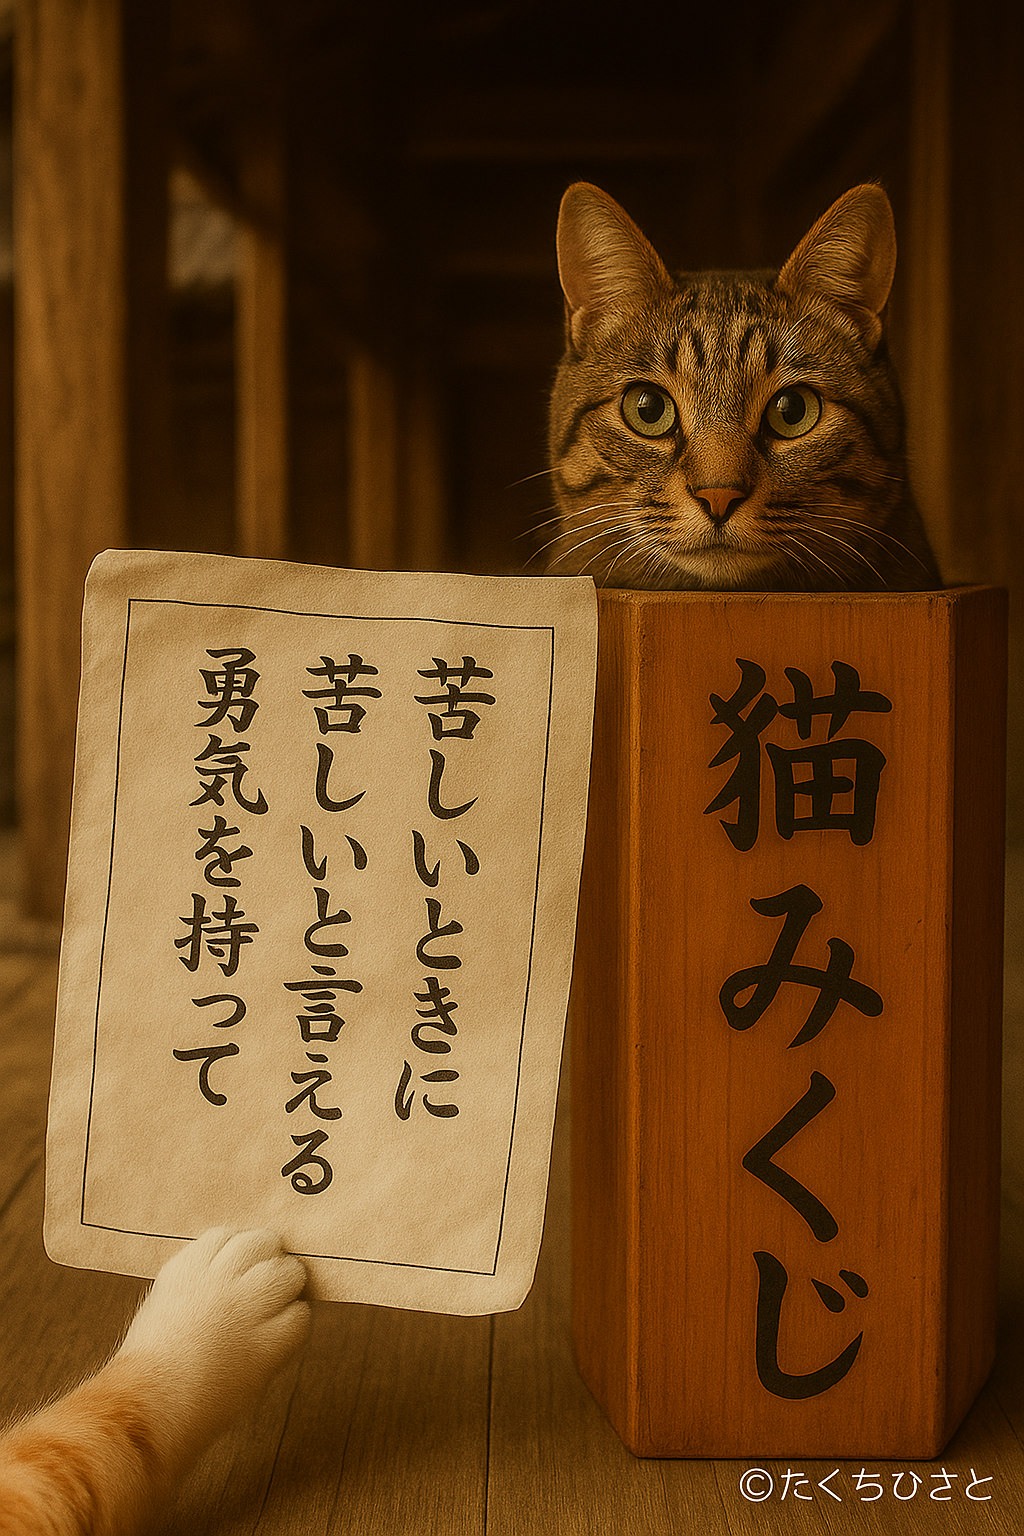 苦しいときに
苦しいと言える
勇気を持って
猫みくじ
©たくちひさと